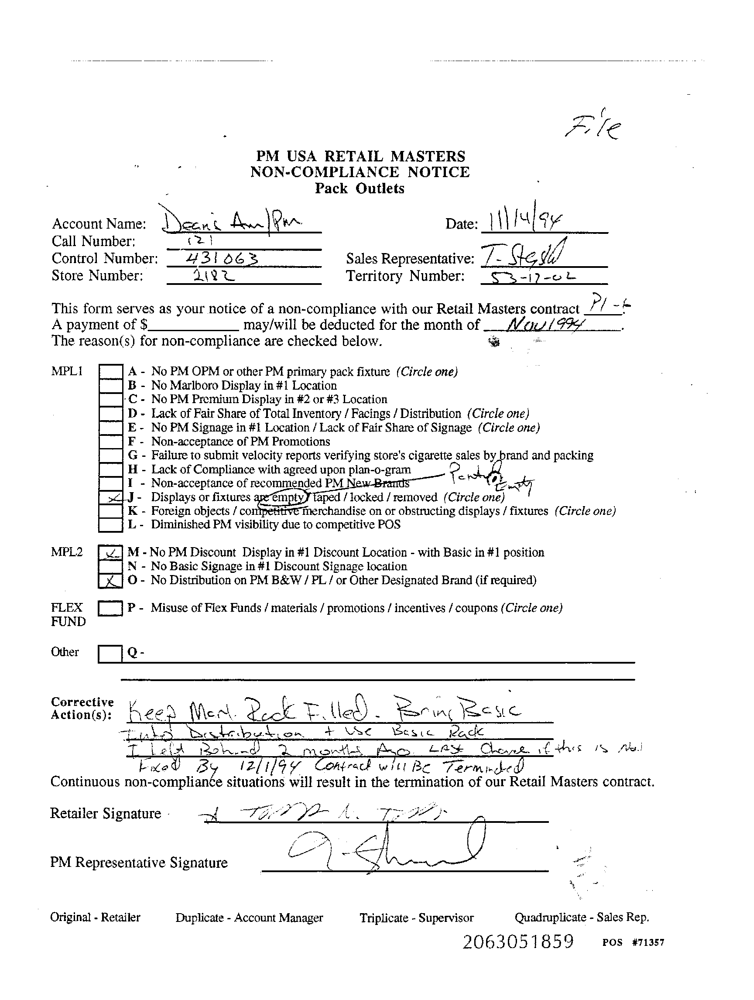 File
PM USA RETAIL MASTERS
NON-COMPLIANCE NOTICE
Pack Outlets
Account Name: Dean's Am/Pm Date: 11/14/94
Call Number: 121
Control Number: 431063 Sales Representative: T.
Store Number: 2182 Territory Number: 53-17-02
This form serves as your notice of a non-compliance with our Retail Masters contract P1-
A payment of $ may/will be deducted for the month of Nov 1994.
The reason(s) for non-compliance are checked below.
MPL1 A - No PM OPM or other PM primary pack fixture (Circle one)
B - No Marlboro Display in #1 Location
C - No PM Premium Display in #2 or #3 Location
D - Lack of Fair Share of Total Inventory / Facings / Distribution (Circle one)
E - No PM Signage in #1 Location / Lack of Fair Share of Signage (Circle one)
F - Non-acceptance of PM Promotions
G - Failure to submit velocity reports verifying store's cigarette sales by brand and packing
H - Lack of Compliance with agreed upon plan-o-gram
I - Non-acceptance of recommended PM New Brands Empty
J - Displays or fixtures are empty / taped / locked / removed (Circle one)
K - Foreign objects / competitive merchandise on or obstructing displays / fixtures (Circle one)
L - Diminished PM visibility due to competitive POS
MPL2 M - No PM Discount Display in #1 Discount Location - with Basic in #1 position
N - No Basic Signage in #1 Discount Signage location
X O - No Distribution on PM B&W / PL / or Other Designated Brand (if required)
FLEX P - Misuse of Flex Funds / materials / promotions / incentives / coupons (Circle one)
FUND
Other Q -
Corrective
Action(s): Keep Marl. Rack Filled. Bring Basic
Into Distribution + Use Basic Rack
I left Behind 2 months Ago. Last Chance if this is Not
Fixed By 12/1/94 Contract will Be Terminated
Continuous non-compliance situations will result in the termination of our Retail Masters contract.
Retailer Signature
PM Representative Signature
Original - Retailer Duplicate - Account Manager Triplicate - Supervisor Quadruplicate - Sales Rep.
2063051859 POS #71357